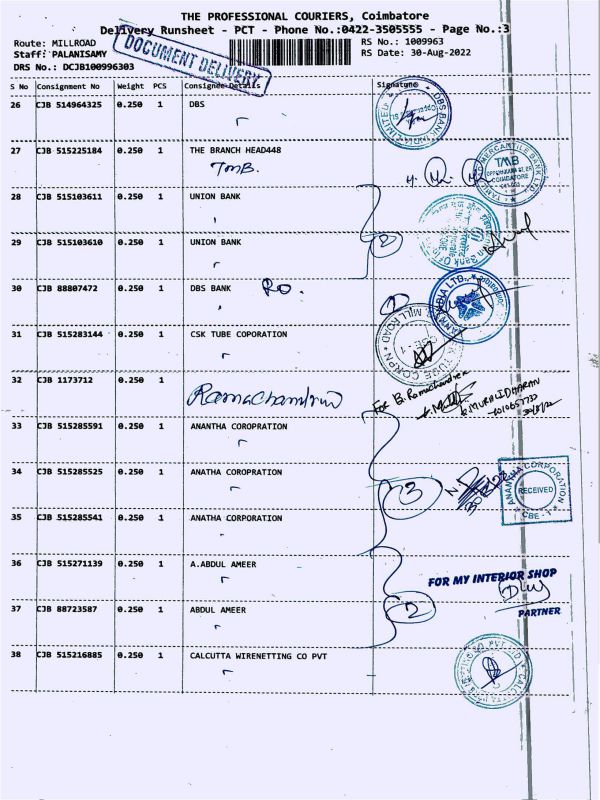 THE PROFESSIONAL COURIERS, Coimbatore
Delivery Runsheet - PCT - Phone No.:0422-3505555 - Page No.:3
Route: MILLROAD
RS No.: 1009963
Staff: PALANISAMY
RS Date: 30-Aug-2022
DRS No.: DCJB100996303
DOCUMENT DELIVERY
S No Consignment No Weight PCS Consignee Details Signature
26 CJB 514964325 0.250 1 DBS
DBS BANK INDIA LIMITED
27 CJB 515225184 0.250 1 THE BRANCH HEAD448
TMB.
TAMILNAD MERCANTILE BANK LTD.
TMB
COIMBATORE
28 CJB 515103611 0.250 1 UNION BANK
29 CJB 515103610 0.250 1 UNION BANK
2
30 CJB 88807472 0.250 1 DBS BANK RO.
1
31 CJB 515283144 0.250 1 CSK TUBE COPORATION
CSK TUBE CORPN
MILL ROAD
CBE - 1
32 CJB 1173712 0.250 1
Ramachandran
For B. Ramachandran
K. MURALIDHARAN
30/8/22
33 CJB 515285591 0.250 1 ANANTHA COROPRATION
34 CJB 515285525 0.250 1 ANATHA CORPORATION
3
ANANTHA CORPORATION
RECEIVED
CBE - 1
35 CJB 515285541 0.250 1 ANATHA CORPORATION
36 CJB 515271139 0.250 1 A.ABDUL AMEER
FOR MY INTERIOR SHOP
37 CJB 88723587 0.250 1 ABDUL AMEER
2
PARTNER
38 CJB 515216885 0.250 1 CALCUTTA WIRENETTING CO PVT